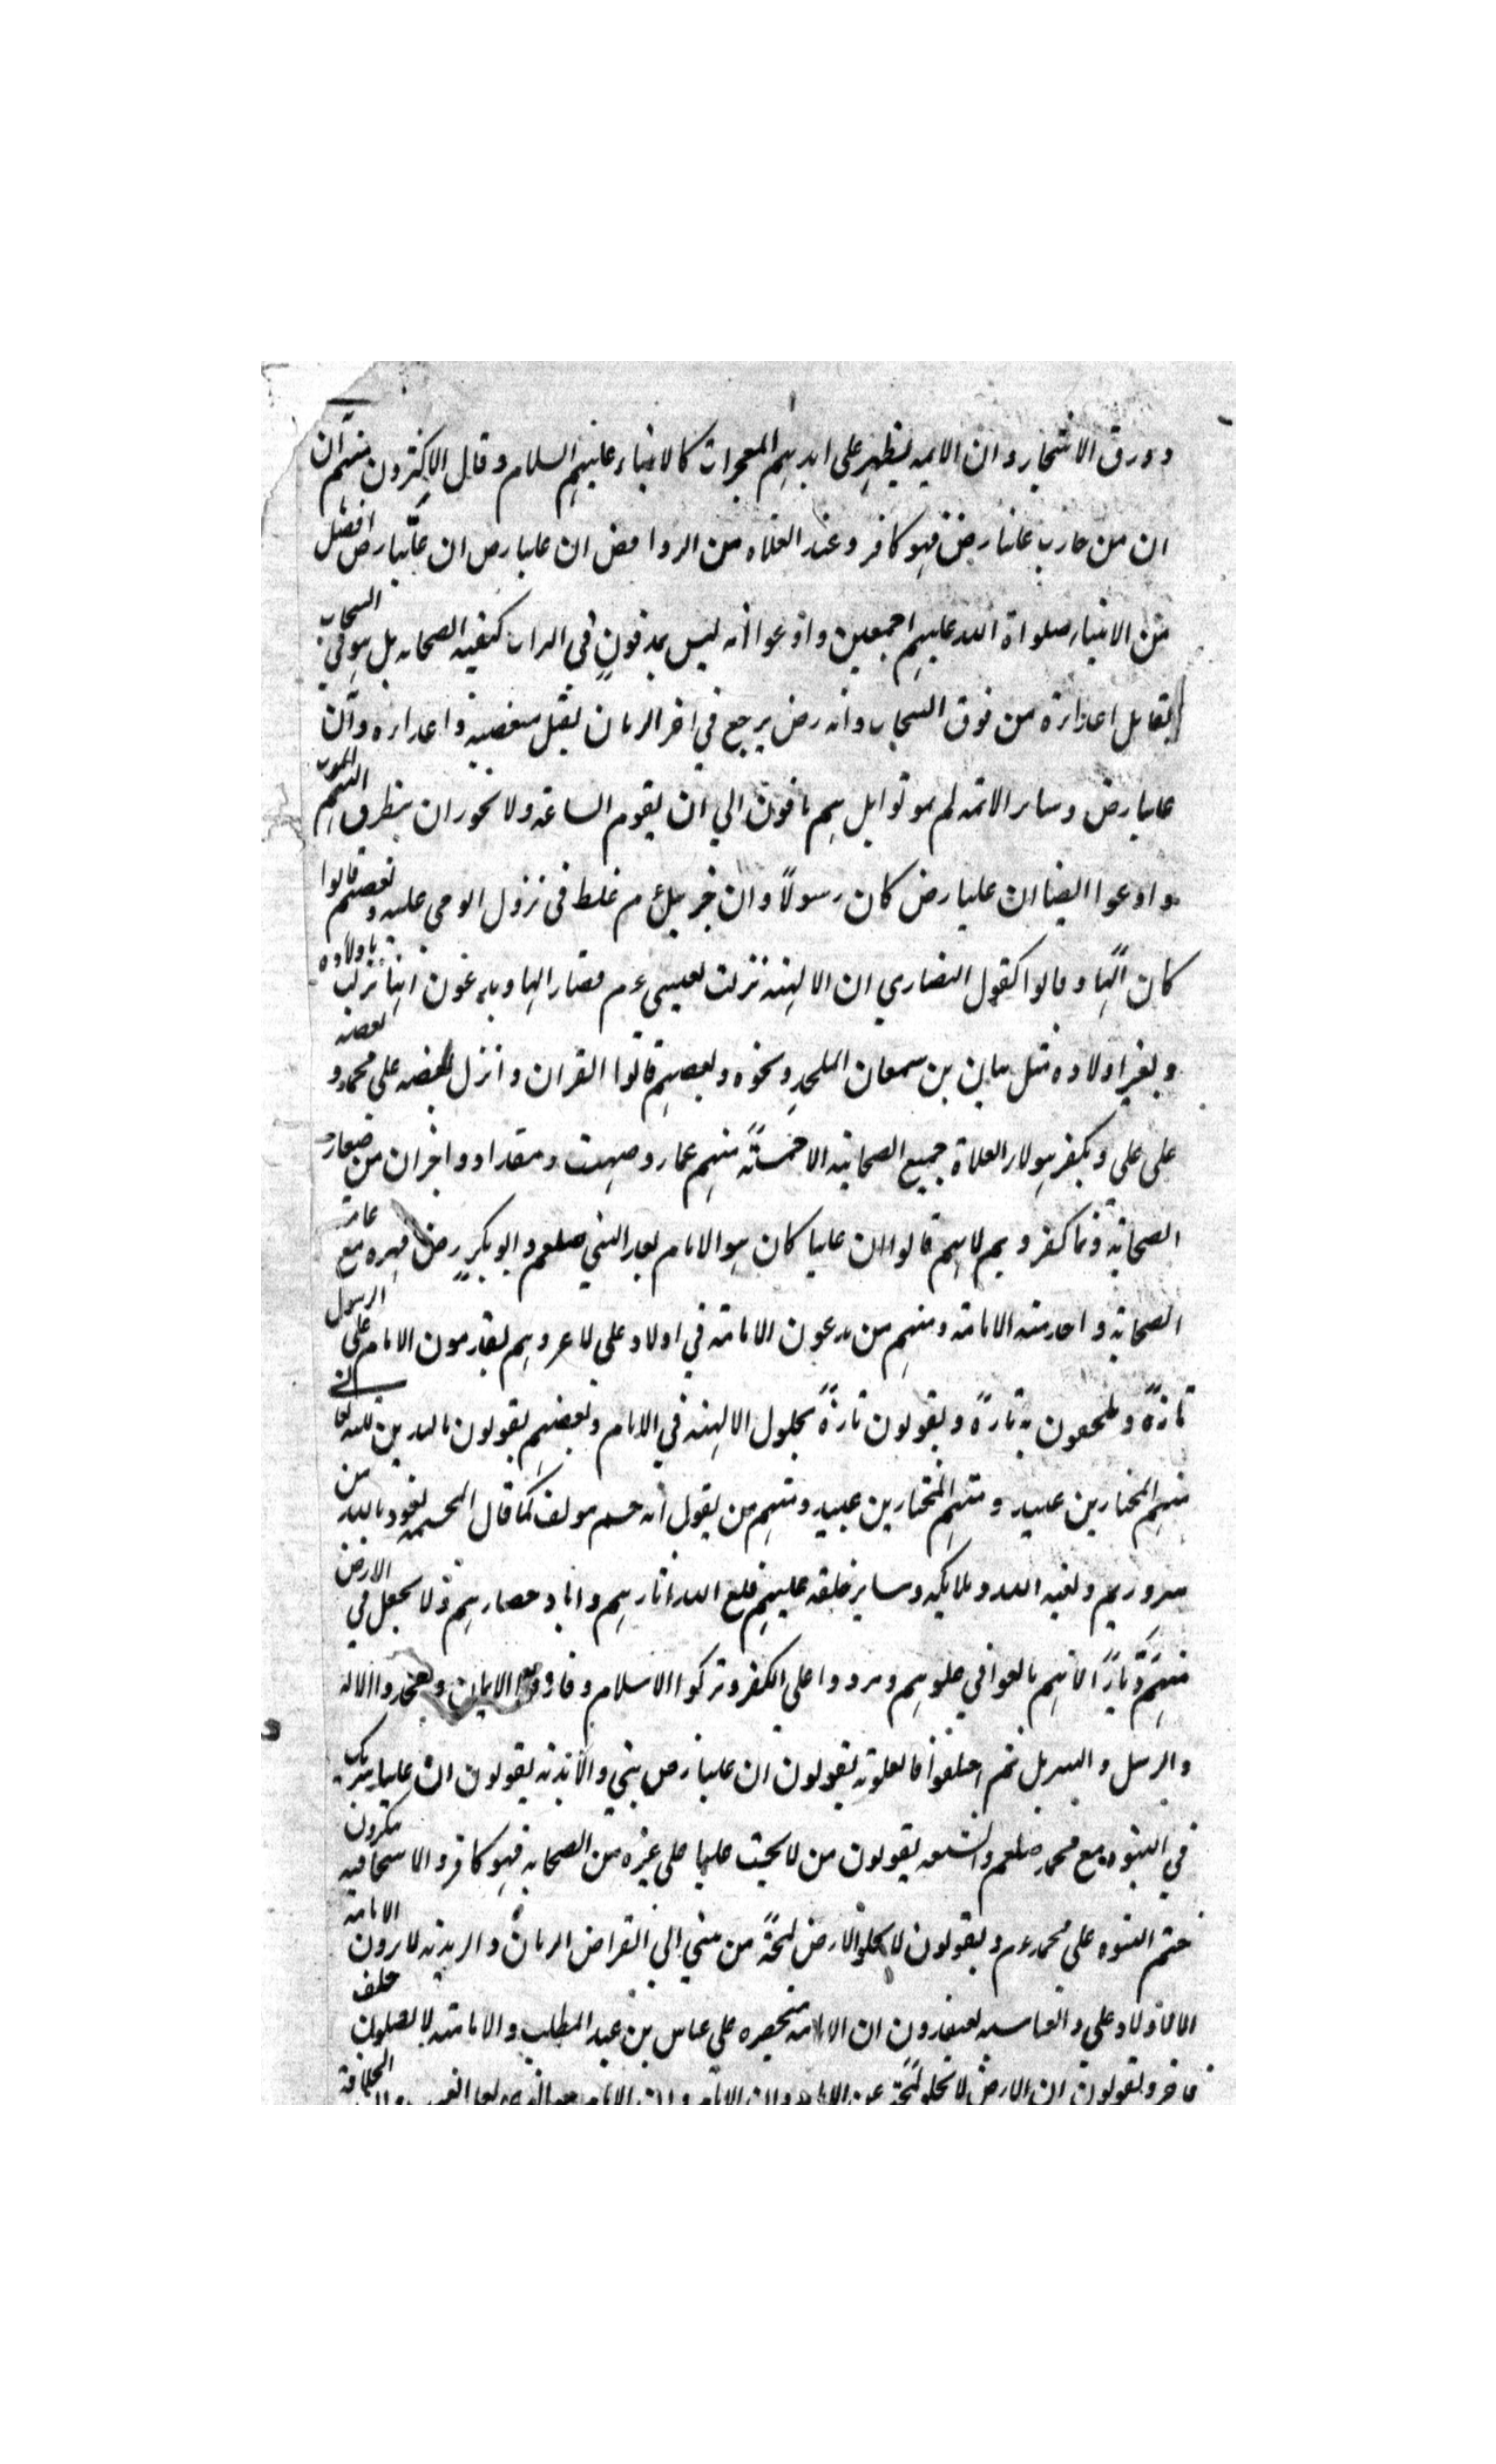 وورق الاشجار وان الايمه يظهر على ايديهم المعجزات كالانبياء عليهم السلام وقال الاكثرون منهم ان
ان من حارب عليا رض فهو كافر وعند الغلاه من الروافض ان عليا رض ان عليا رض افضل
من الانبياء صلواة الله عليهم اجمعين وادعوا انه ليس بمدفون في التراب كبقيه الصحابه بل هو في السحاب
يقاتل اعداءه من فوق السحاب وانه رض يرجع في اخر الزمان يقتل مبغضيه واعداءه وان
عليا رض وساير الائمه لم يموتوا بل هم باقون الي ان يقوم الساعه ولا يجوز ان يتطرق اليهم الموت
وادعوا ايضا ان عليا رض كان رسولاً وان جبريل ع م غلط في نزول الوحي عليه وبعضهم قالوا
كان الهًا وقالوا كقول النصاري ان الالهيه نزلت بعيسى ع م فصار الها ويدعون انها نزلت باولاده
وبغير اولاده مثل بيان بن سمعان الملحد ونحوه وبعضهم قالوا القران وانزل بعضه على محمد و بعضه
على على ويكفر هولاء الغلاة جميع الصحابة الا خمسةً منهم عمار وصهيب ومقداد واخران من ضعفاء
الصحابة وتكفرونهم لانهم قالوا ان عليا كان هو الامام بعد النبي صلعم وابو بكر رض قهره مع عامة
الصحابة واخذ منه الامامة ومنهم من يدعون الامامة في اولاد علي لا غير وهم يقدمون الامام على الرسول
تارةً ويلحقون به تارةً ويقولون تارةً بحلول الالهيه في الامام وبعضهم يقولون بالهين لله تعالى
منهم المختار بن عبيد ومنهم المختار بن عبيد ومنهم من يقول انه جسم مولف كما قال المجسمه نعوذ بالله من
شرورهم ولعنة الله وملايكه وساير خلقه عليهم قلع الله اثارهم واباد حضارهم ولا يجعل في الارض
منهم ديارًا لانهم بالغوا في غلوهم ومردوا على الكفر وتركوا الاسلام وفارقوا الايمان وجحدوا الاله
والرسل والتنزيل ثم اختلفوا فالعلوية يقولون ان عليا رض نبي والابدية يقولون ان عليا شريك
في النبوه مع محمد صلعم والشيعه يقولون من لا يحب عليا على غيره من الصحابه فهو كافر والاسحاقيه ينكرون
ختم النبوه على محمد ع م ويقولون لا يخلو الارض لمحةً من نبي الي انقراض الزمان والزيديه لا يرون الامامة
الا لاولاد علي والعباسيه يعتقدون ان الامامه منحصره على عباس بن عبد المطلب والاماميه لا يصلون خلف
فاجر ويقولون ان الارض لا تخلو لمحة عن الامام